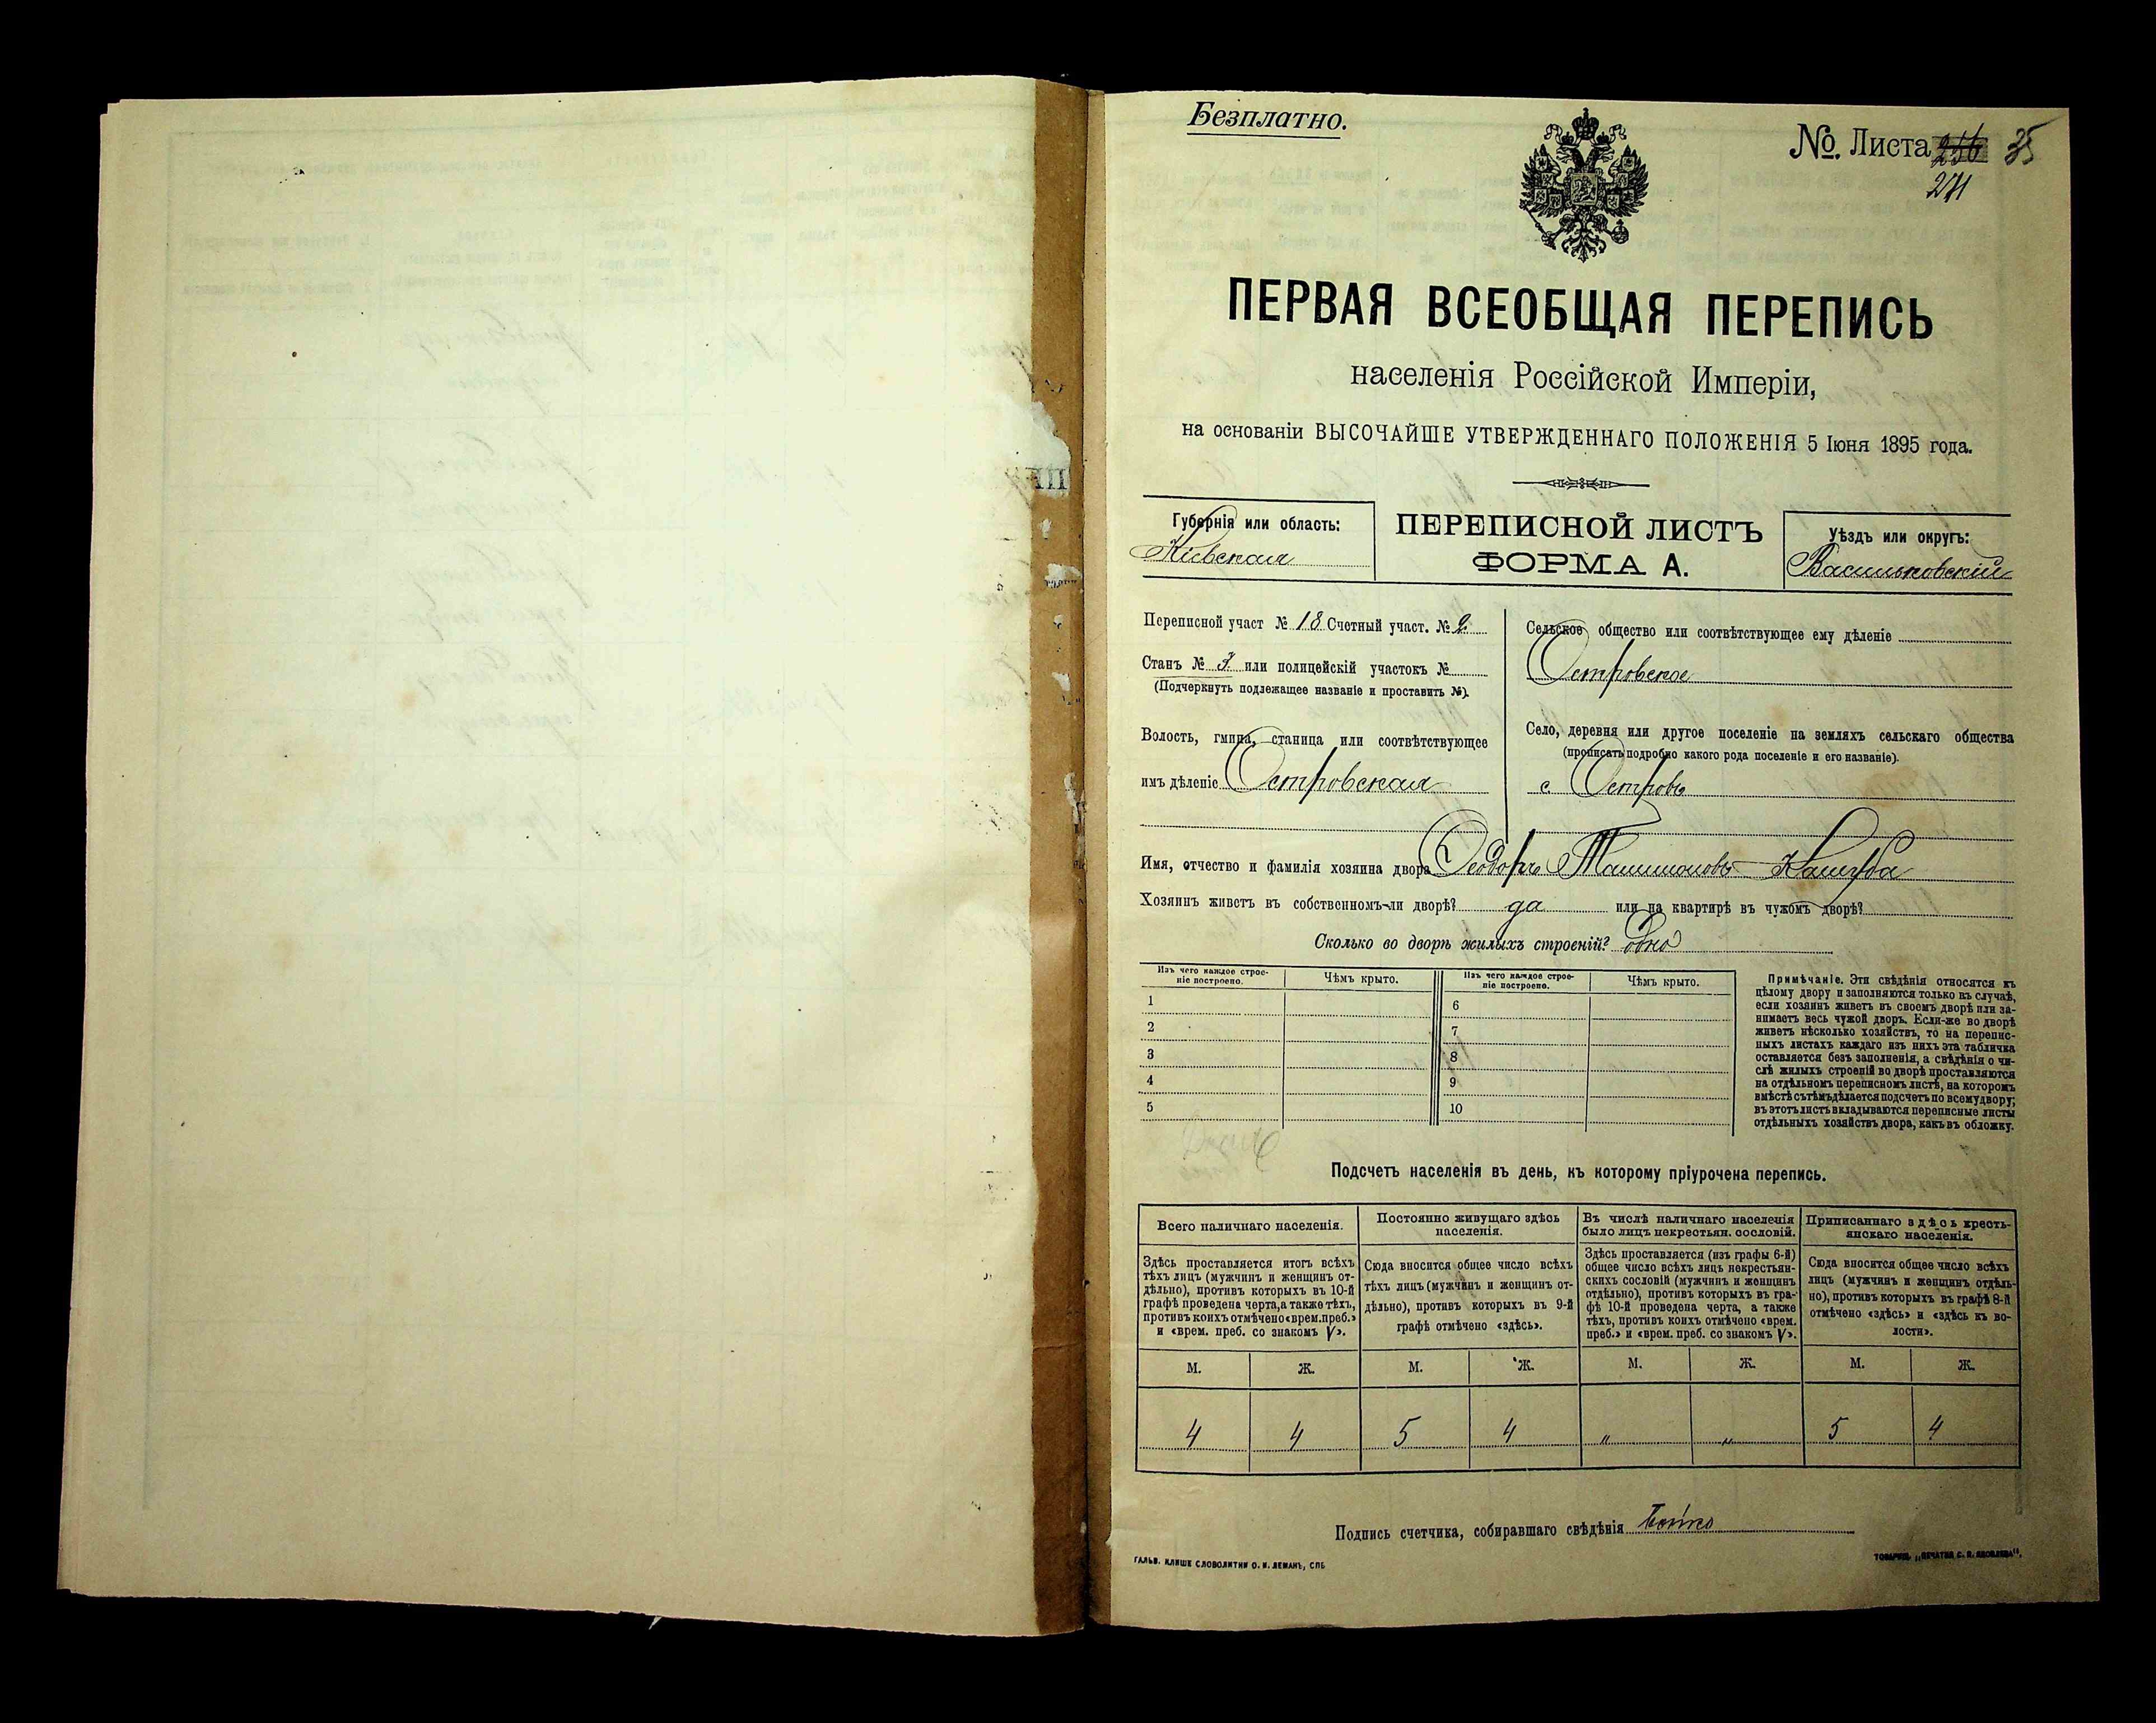 Безплатно.
№. Листа 256 35
271
ПЕРВАЯ ВСЕОБЩАЯ ПЕРЕПИСЬ
населенія Россійской Имперіи,
на основаніи ВЫСОЧАЙШЕ УТВЕРЖДЕННАГО ПОЛОЖЕНІЯ 5 Іюня 1895 года.
Губернія или область:
Кіевская
ПЕРЕПИСНОЙ ЛИСТЪ
ФОРМА А.
Уѣздъ или округъ:
Васильковскій
Переписной участ № 18 Счетный участ. № 2
Станъ № 3 или полицейскій участокъ №
(Подчеркнуть подлежащее названіе и проставить №).
Волость, гмина, станица или соотвѣтствующее
имъ дѣленіе Островская
Сельское общество или соотвѣтствующее ему дѣленіе
Островское
Село, деревня или другое поселеніе на земляхъ сельскаго общества
(прописать подробно какого рода поселеніе и его названіе).
с Островъ
Имя, отчество и фамилія хозяина двора Ѳеодоръ Кашуба
Хозяинъ живетъ въ собственномъ-ли дворѣ? да или на квартирѣ въ чужомъ дворѣ?
Сколько во дворѣ жилыхъ строеній? одно
Изъ чего каждое строе-
ніе построено.
Чѣмъ крыто.
Изъ чего каждое строе-
ніе построено.
Чѣмъ крыто.
1 6
2 7
3 8
4 9
5 10
Примѣчаніе. Эти свѣдѣнія относятся къ
цѣлому двору и заполняются только въ случаѣ,
если хозяинъ живетъ въ своемъ дворѣ или за-
нимаетъ весь чужой дворъ. Если-же во дворѣ
живетъ нѣсколько хозяйствъ, то на перепис-
ныхъ листахъ каждаго изъ нихъ эта табличка
оставляется безъ заполненія, а свѣдѣнія о чи-
слѣ жилыхъ строеній во дворѣ проставляются
на отдѣльномъ переписномъ листѣ, на которомъ
вмѣстѣ съ тѣмъ дѣлается подсчетъ по всему двору;
въ этотъ листъ вкладываются переписные листы
отдѣльныхъ хозяйствъ двора, какъ въ обложку.
Подсчетъ населенія въ день, къ которому пріурочена перепись.
Всего наличнаго населенія.
Постоянно живущаго здѣсь
населенія.
Въ числѣ наличнаго населенія
было лицъ некрестьян. сословій.
Приписаннаго здѣсь кресть-
янскаго населенія.
Здѣсь проставляется итогъ всѣхъ
тѣхъ лицъ (мужчинъ и женщинъ от-
дѣльно), противъ которыхъ въ 10-й
графѣ проведена черта, а также тѣхъ,
противъ коихъ отмѣчено «врем. преб.»
и «врем. преб. со знакомъ V».
Сюда вносится общее число всѣхъ
тѣхъ лицъ (мужчинъ и женщинъ от-
дѣльно), противъ которыхъ въ 9-й
графѣ отмѣчено «здѣсь».
Здѣсь проставляется (изъ графы 6-й)
общее число всѣхъ лицъ некрестьян-
скихъ сословій (мужчинъ и женщинъ
отдѣльно), противъ которыхъ въ гра-
фѣ 10-й проведена черта, а также
тѣхъ, противъ коихъ отмѣчено «врем.
преб.» и «врем. преб. со знакомъ V».
Сюда вносится общее число всѣхъ
лицъ (мужчинъ и женщинъ отдѣль-
но), противъ которыхъ въ графѣ 8-й
отмѣчено «здѣсь» и «здѣсь къ во-
лости».
М. Ж. М. Ж. М. Ж. М. Ж.
4 4 5 4 " " 5 4
Подпись счетчика, собиравшаго свѣдѣнія Бойко
ГАЛЬВ. КЛИШЕ СЛОВОЛИТНИ О. И. ЛЕМАНЪ, СПБ
ТОВАРИЩ. „ПЕЧАТНЯ С. П. ЯКОВЛЕВА".